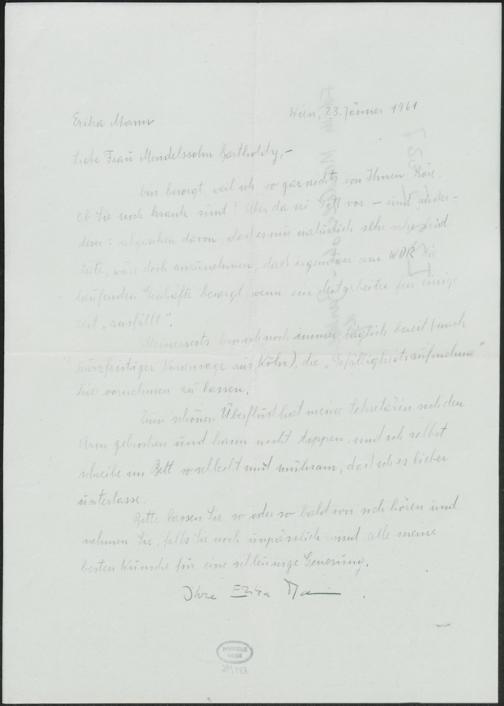 Erika Mann
Wien, 23. Jänner 1961
Liebe Frau Mendelssohn Bartholdy,-
bin besorgt, weil ich so gar nichts von Ihnen höre.
Ob Sie noch krank sind? Aber da sei Gott vor – und ausser-
dem: abgesehen davon, dass es mir natürlich sehr
täte, wäre doch anzunehmen, dass irgendwer am WDR die
laufenden Geschäfte besorgt wenn ein Mitarbeiter für einige
Zeit „ausfällt".
Meinerseits noch immer täglich bereit (nach
kurzfristiger Voransage aus Köln), die „Gefälligkeitsaufnahme"
hier vornehmen zu lassen.
Zum schönen Überfluss hat meine Sekretärin sich den
Arm gebrochen und kann nicht tippen, und ich selbst
schreibe im Bett so schlecht und mühsam, dass ich es lieber
unterlasse.
Bitte lassen Sie so oder so bald von sich hören und
nehmen Sie, falls Sie noch unpässlich sind, alle meine
besten Wünsche für eine schleunige Genesung.
Ihre Erika Mann